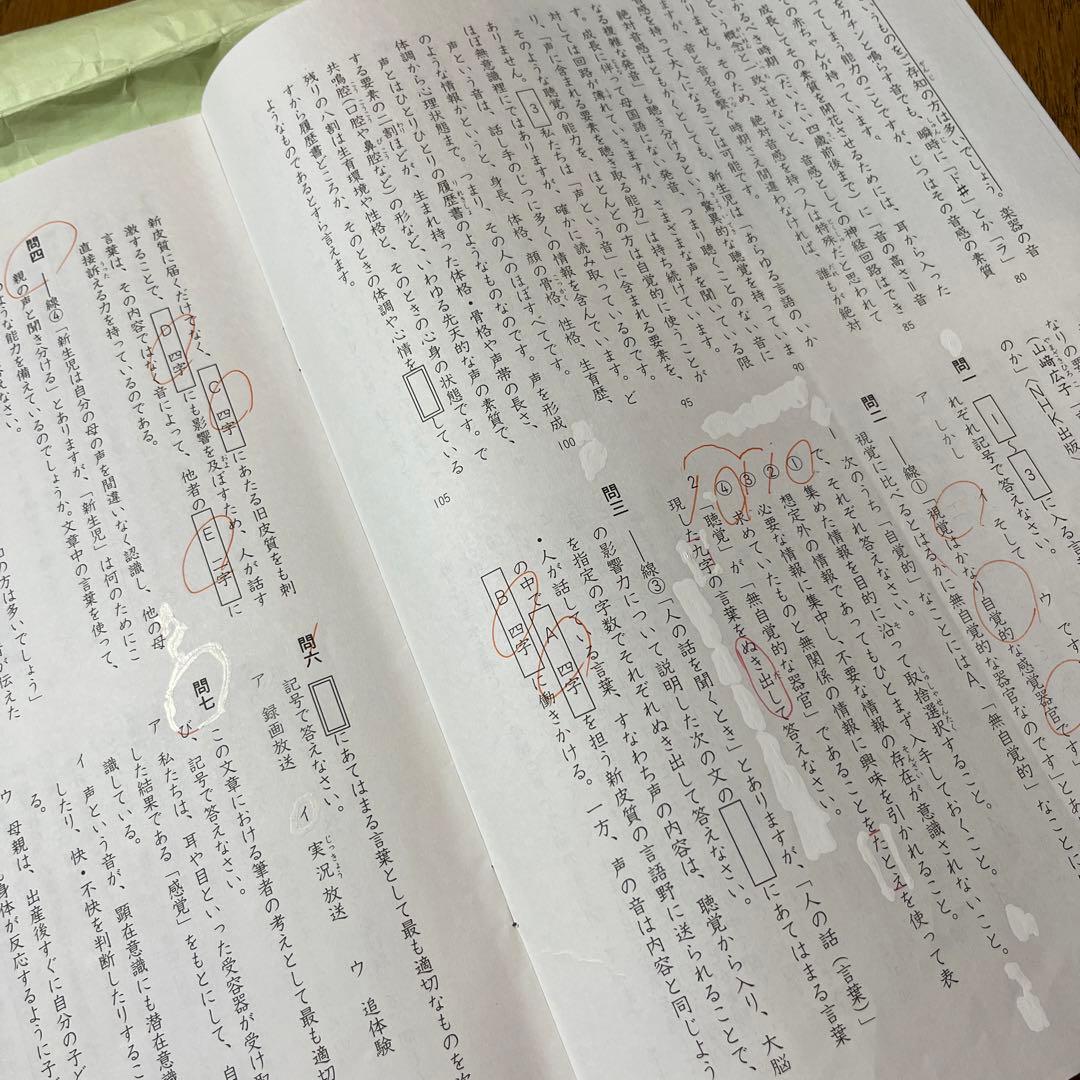 いうものをご存知の方は多いでしょう。楽器の音
をカチンと鳴らす音でも、瞬時に「ド#」とか「ラ」
てしまう能力のことですが、じつはその音感の素質
の赤ちゃんが持っています。
してその素質を開花させるためには、耳から入った
成長してゆくべき時期（だいたい四歳前後まで）に「音の高さ=音
音感を持って大人になることは可能です。
絶対音感はともかくとしても、新生児は「あらゆる言語のいか
なる複雑な発音」も聴き分けるという、驚異的な聴覚を持っていま
す。成長に伴って母国語にない発音、さまざまな声や聞いている限
対しては回路が薄れていきますが、つまり聴くことのない音に
り、「声に含まれる要素を聴き取る能力」は持ち続けています。
そのような聴覚の能力を、ほとんどの方は自覚的に使うことが
ありません。
3 私たちは「声という音」に含まれる要素を、
ほぼ無意識裡にではありますが、確かに読み取っているのです。
声という音は、話し手のじつに多くの情報を含んでいます。ど
のような情報かというと、身長、体格、顔の骨格、性格、生育歴、
体調から心理状態まで。つまり、その人のほぼすべてです。
声とはひとりひとりの履歴書のようなものなのです。声を形成
する要素の二割ほどが、生まれ持った体格・骨格や声帯の長さ、
共鳴腔（口腔や鼻腔など）の形など、いわゆる先天的な声の素質で、
残りの八割は生育環境や性格と、そのときの心身の状態です。で
すから履歴書どころか、そのときの体調や心情を している
ようなものであるとすら言えます。
80
85
90
95
100
105
（山﨑広子
のか」〈NHK出版
問一 1 〜 3 に入る言
れぞれ記号で答えなさい。
ア しかし イ そして ウ です
問二 ――線①「視覚はかなり自覚的な感覚器官です」とあ
視覚に比べるとはるかに無自覚的な器官なのです」とあり
次のうち「自覚的」なことにはA、「無自覚的」なことに
で、それぞれ答えなさい。
① 集めた情報を目的に沿って取捨選択すること。
② 想定外の情報であってもひとまず入手しておくこと。
③ 必要な情報に集中し、不要な情報の存在が意識されないこと。
④ 求めていたものと無関係の情報に興味を引かれること。
2 「聴覚」が「無自覚的な器官」であることをたとえを使って表
現した九字の言葉をぬき出して答えなさい。
問三 ――線③「人の話を聞くとき」とありますが、「人の話（言葉）」
の影響力について説明した次の文の にあてはまる言葉
を指定の字数でそれぞれぬき出して答えなさい。
・人が話している言葉、すなわち声の内容は、聴覚から入り、大脳
の中で A 四字 を担う新皮質の言語野に送られることで、
B 四字 働きかける。一方、声の音は内容と同じよう
新皮質に届くだけでなく C 四字 にあたる旧皮質をも刺
激することで、 D 四字 にも影響を及ぼすため、人が話す
言葉は、その内容ではなく音によって、他者の E 二字 に
直接訴える力を持っているのである。
問四 ――線④「新生児は自分の母の声を間違いなく認識し、他の母
親の声と聞き分ける」とありますが、「新生児」は何のためにこ
のような能力を備えているのでしょうか。文章中の言葉を使って、
の方は多いでしょう」
問六 にあてはまる言葉として最も適切なものを次
記号で答えなさい。
ア 録画放送 イ 実況放送 ウ 追体験
問七 この文章における筆者の考えとして最も適切
び、記号で答えなさい。
ア 私たちは、耳や目といった受容器が受け取
した結果である「感覚」をもとにして、自
識している。
イ 声という音が、顕在意識にも潜在意識
したり、快・不快を判断したりするこ
る。
ウ 母親は、出産後すぐに自分の子ど